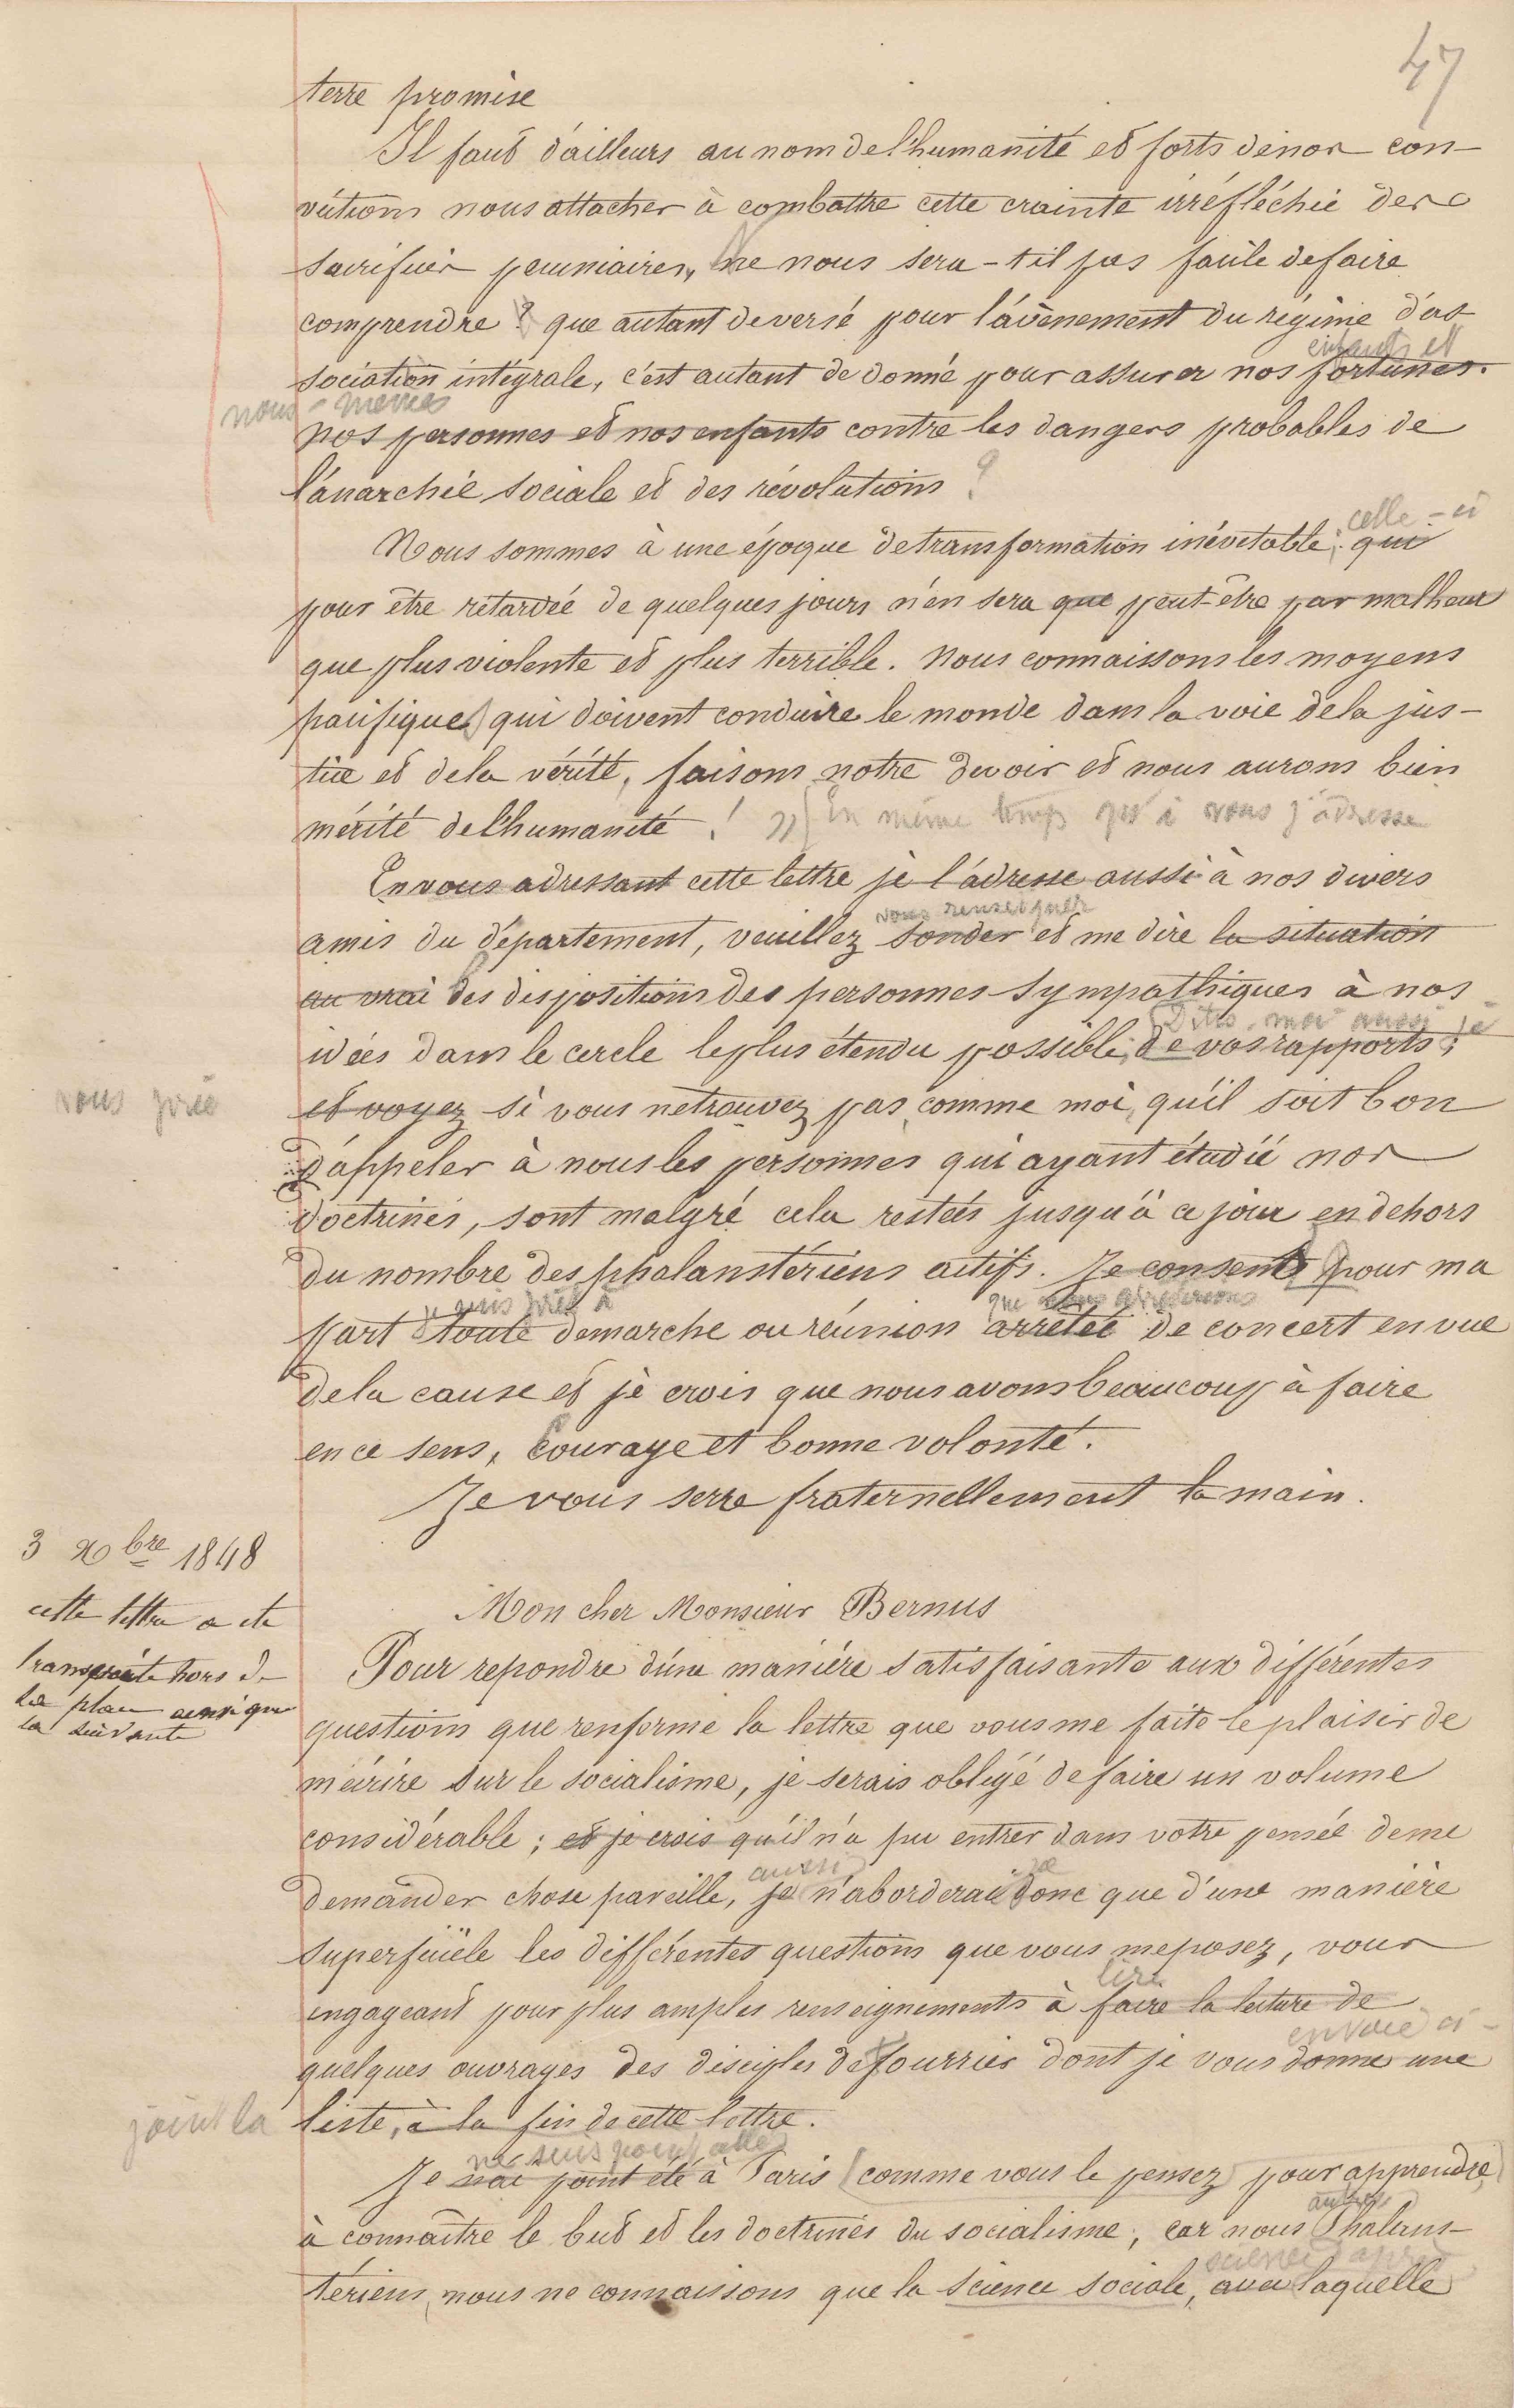 47
terre promise
Il faut d'ailleurs au nom de l'humanité et forts de nos con-
victions nous attacher à combattre cette crainte irréfléchie des
sacrifices pecuniaires, ne nous sera-t-il pas facile de faire
comprendre ? que autant de versé pour l'avènement du régime d'as
enfants et
sociation intégrale, c'est autant de donné pour assurer nos fortunes.
nous-mêmes
nos personnes et nos enfants contre les dangers probables de
l'anarchie sociale et des révolutions ?
celle-ci
Nous sommes à une époque de transformation inévitable ; qui
pour être retardée de quelques jours n'en sera que peut-être par malheur
que plus violente et plus terrible. Nous connaissons les moyens
pacifiques qui doivent conduire le monde dans la voie de la jus-
tice et de la vérité, faisons notre devoir et nous aurons bien
mérité de l'humanité ! » En même temps qu'à vous j'adresse
En vous adressant cette lettre je l'adresse aussi à nos divers
vous renseigner
amis du département, veuillez sonder et me dire la situation
au vrai des dispositions des personnes sympathiques à nos
Dites-moi aussi je
idées dans le cercle le plus étendu possible, de vos rapports ;
vous prie
et voyez si vous ne trouvez pas, comme moi, qu'il soit bon
d'appeler à nous les personnes qui ayant étudié nos
doctrines, sont malgré cela restées jusqu'à ce jour en dehors
du nombre des phalanstériens actifs. Je consens pour ma
je suis prêt à
que nous
part toute demarche ou réunion arrêtée de concert en vue
de la cause et je crois que nous avons beaucoup à faire
en ce sens, courage et bonne volonté.
Je vous serre fraternellement la main.
3 Xbre 1848
cette lettre a ete
transcrite hors de
sa place ainsi que
la suivante
Mon cher Monsieur Bernus
Pour repondre d'une manière satisfaisante aux différentes
questions que renferme la lettre que vous me faite le plaisir de
m'écrire sur le socialisme, je serais obligé de faire un volume
considérable ; et je crois qu'il n'a pu entrer dans votre pensée de me
aussi je
demander chose pareille, je n'aborderai donc que d'une manière
superficiële les différentes questions que vous me posez, vous
lire
engageant pour plus amples renseignements à faire la lecture de
envoie ci-
quelques ouvrages des disciples de fourrier dont je vous donne une
joint la
liste, à la fin de cette lettre.
ne suis point allé
Je n'ai point été à Paris (comme vous le pensez) pour apprendre
autres
à connaître le but et les doctrines du socialisme, car nous Phalans-
science d'après
tériens, nous ne connaissons que la science sociale, avec laquelle